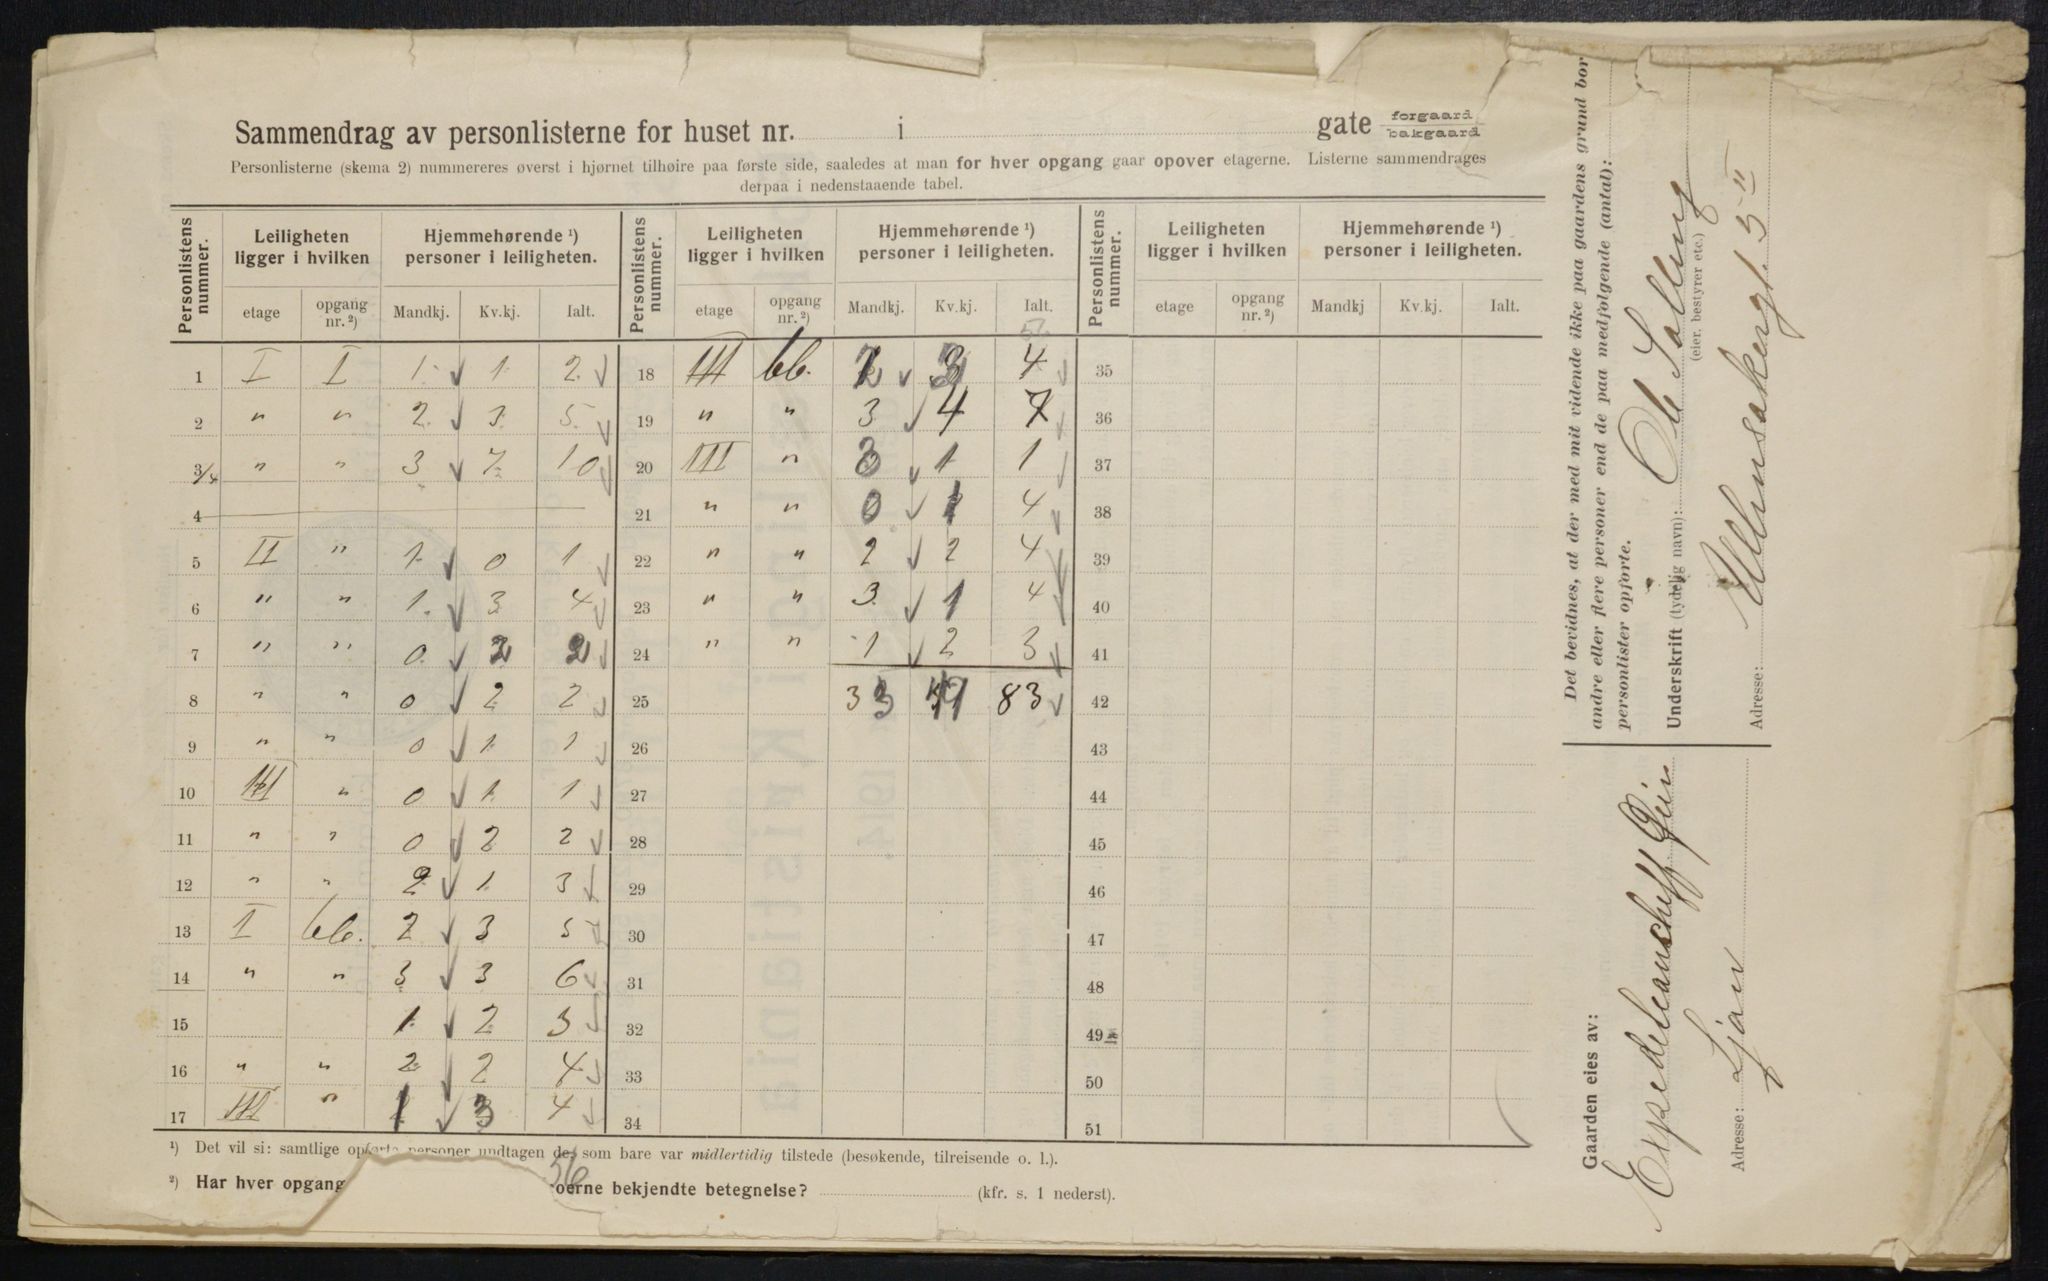 Sammendrag av personlisterne for huset nr. i gate forgaard bakgaard
Personlisterne (skema 2) nummereres øverst i hjørnet tilhøire paa første side, saaledes at man for hver opgang gaar opover etagerne. Listerne sammendrages
derpaa i nedenstaaende tabel.
Personlistens nummer. Leiligheten ligger i hvilken Hjemmehørende ¹) personer i leiligheten. Personlistens nummer. Leiligheten ligger i hvilken Hjemmehørende ¹) personer i leiligheten. Personlistens nummer. Leiligheten ligger i hvilken Hjemmehørende ¹) personer i leiligheten.
etage opgang nr. ²) Mandkj. Kv.kj. Ialt. etage opgang nr. ²) Mandkj. Kv.kj. Ialt. etage opgang nr. ²) Mandkj Kv.kj. Ialt.
1 I I 1 1 2 18 III bb. 3 4 35
2 " " 2 3 5 19 " " 3 4 7 36
3/4 " " 3 7 10 20 III " 1 1 37
4 21 " " 0 1 4 38
5 II " 1 0 1 22 " " 2 2 4 39
6 " " 1 3 4 23 " " 3 1 4 40
7 " " 0 2 2 24 " " 1 2 3 41
8 " " 0 2 2 25 33 83 42
9 " " 0 1 1 26 43
10 III " 0 1 1 27 44
11 " " 0 2 2 28 45
12 " " 2 1 3 29 46
13 I bb. 2 3 5 30 47
14 " " 3 3 6 31 48
15 1 2 3 32 49
16 " " 2 2 4 33 50
17 III " 1 3 4 34 51
¹) Det vil si: samtlige opførte personer undtagen de, som bare var midlertidig tilstede (besøkende, tilreisende o. l.).
56
²) Har hver opgang oerne bekjendte betegnelse? (kfr. s. 1 nederst).
Det bevidnes, at der med mit vidende ikke paa gaardens grund bor
andre eller flere personer end de paa medfølgende (antal):
personlister opførte.
Underskrift (tydelig navn): Ole Solberg
(eier, bestyrer etc.)
Adresse: Ullensakergt. 5 II
Gaarden eies av:
Expeditionscheff
Adresse: Ljan